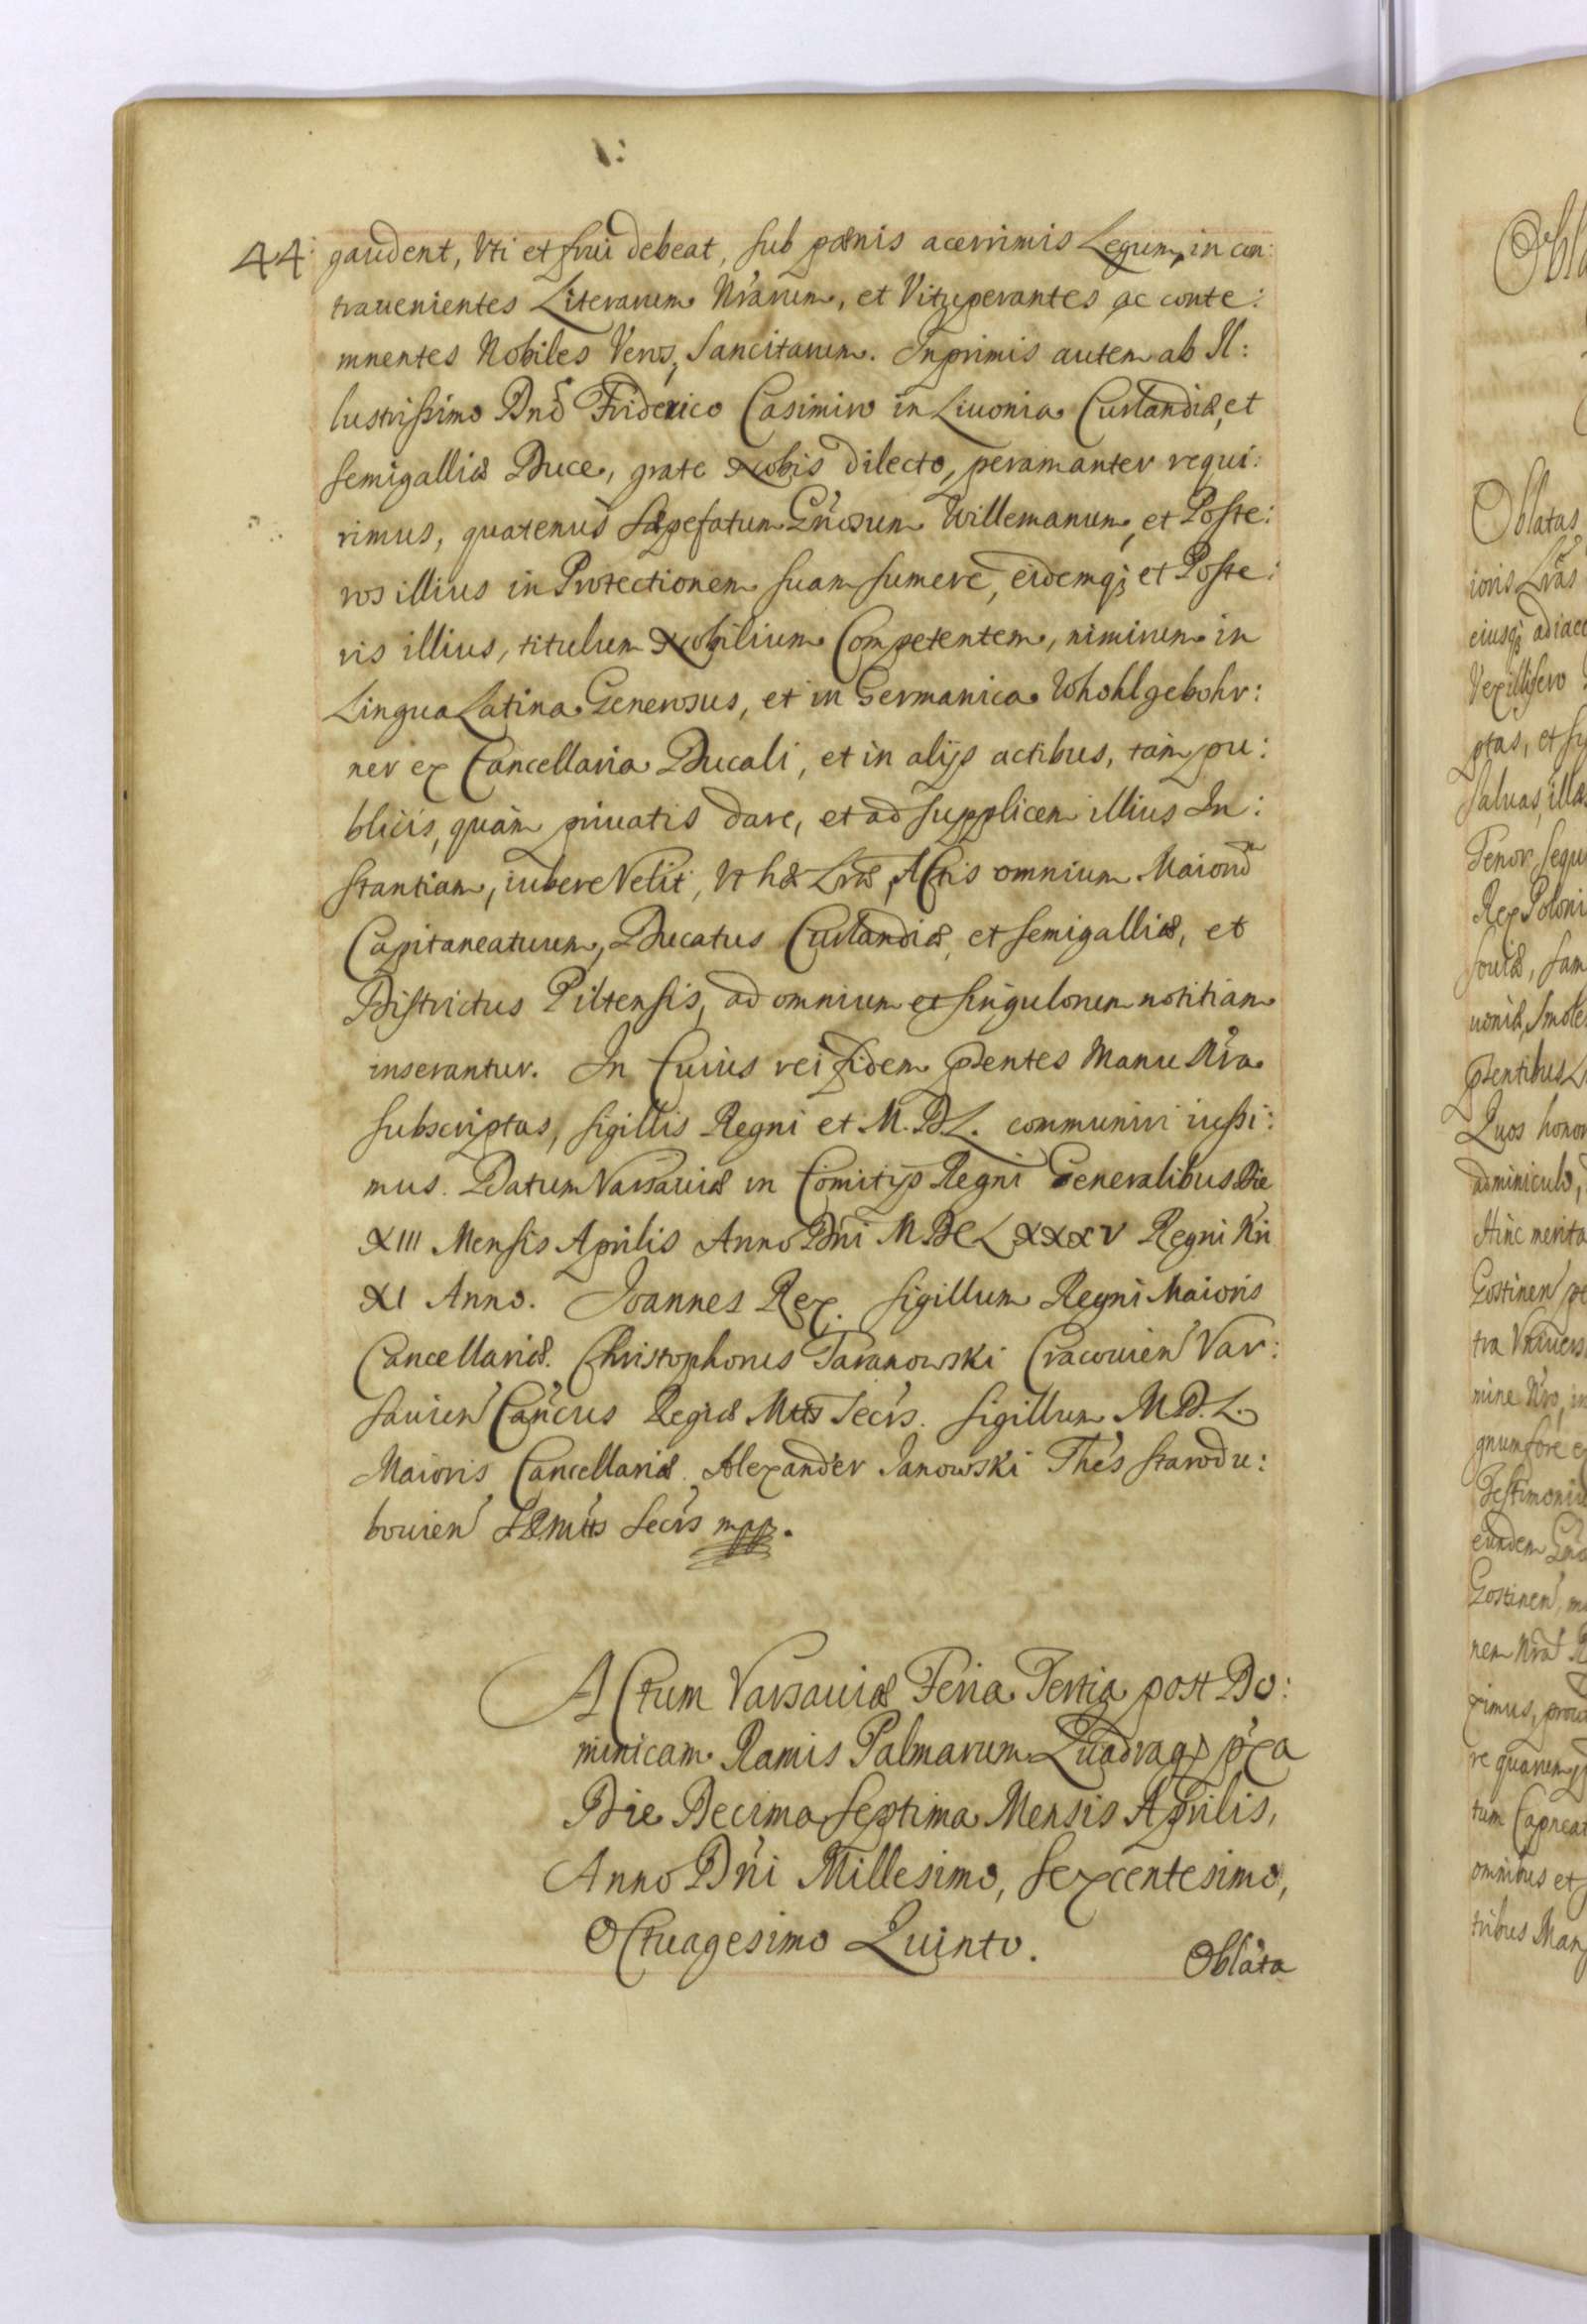 44 gaudent, Vti et frui debeat, sub pænis acerrimis Legum, in con:
trauenientes Literarum Nr̃arum, et Vituperantes ac conte:
mnentes Nobiles Veros, Sancitarum. Inprimis autem ab Il:
lustrissimo Dnõ Friderico Casimiro in Liuonia Curlandiæ, et
Semigalliæ Duce, grate Nobis dilecto, peramanter requi:
rimus, quatenus Sæpefatum Gñosum Willemanum, et Poste:
ros illius in Protectionem suam sumere, eidemq; et Poste:
ris illius, titulum Nobilium Competentem, nimirum in
Lingua Latina Generosus, et in Germanica Whohlgebohr:
ner ex Cancellaria Ducali, et in alijs actibus, tam pu:
blicis, quàm priuatis dare, et ad supplicem illius In:
stantiam, iubere Velit, Vt hæ Lræ, Actis omnium Maiorũ
Capitaneatuum, Ducatus Curlandiæ, et Semigalliæ, et
Districtus Piltensis, ad omnium et singulorum notitiam
inserantur. In Cuius rei fidem pñtes Manu Nr̃a
subscriptas, sigillis Regni et M. D. L. communiri iussi:
mus. Datum Varsauiæ in Comitijs Regni Generalibus Die
XIII Mensis Aprilis Anno Dñi MDCLXXXV Regni Nr̃i
XI Anno. Joannes Rex. Sigillum Regni Maioris
Cancellariæ. Christophorus Taranowski Cracouien̄ Var:
sauien̄ Cañcus Regiæ Mttis Secr̃s. Sigillum M.D.L.
Maioris Cancellariæ. Alexander Janowski Thes̃ Starodu:
bouien̄ SRMttis Secr̃s mpp.
Actum Varsauiæ Feria Tertia post Do:
minicam Ramis Palmarum Quadrages p̃xa
Die Decima Septima Mensis Aprilis,
Anno Dñi Millesimo, Sexcentesimo,
Octuagesimo Quinto.
Oblata
Oblatas